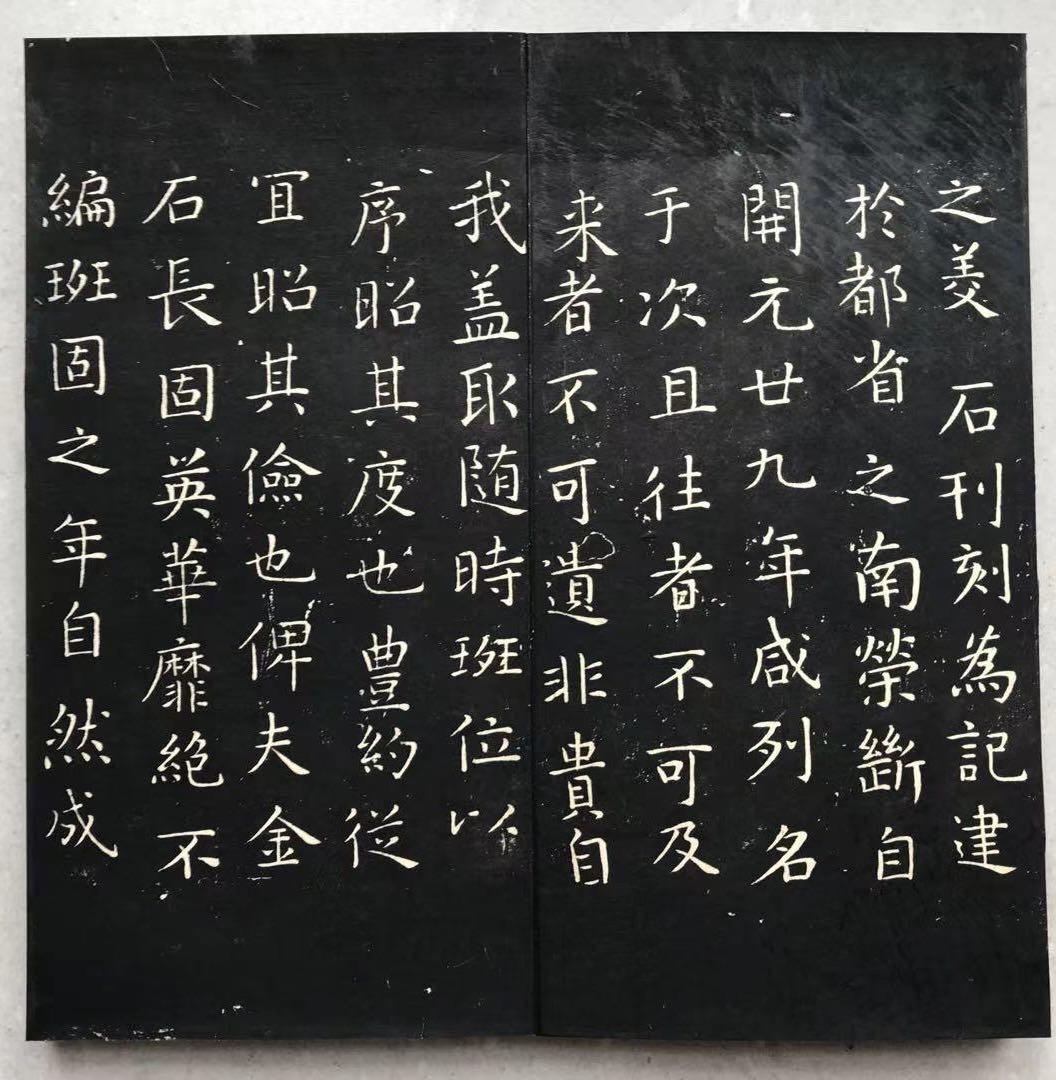 之美石刊刻為記建
於都省之南榮斷自
開元廿九年咸列名
于次且往者不可及
来者不可遺非貴自
我盖取随時班位以
序昭其度也豊約従
冝昭其儉也俾夫金
石長固英華靡絶不
編班固之年自然成